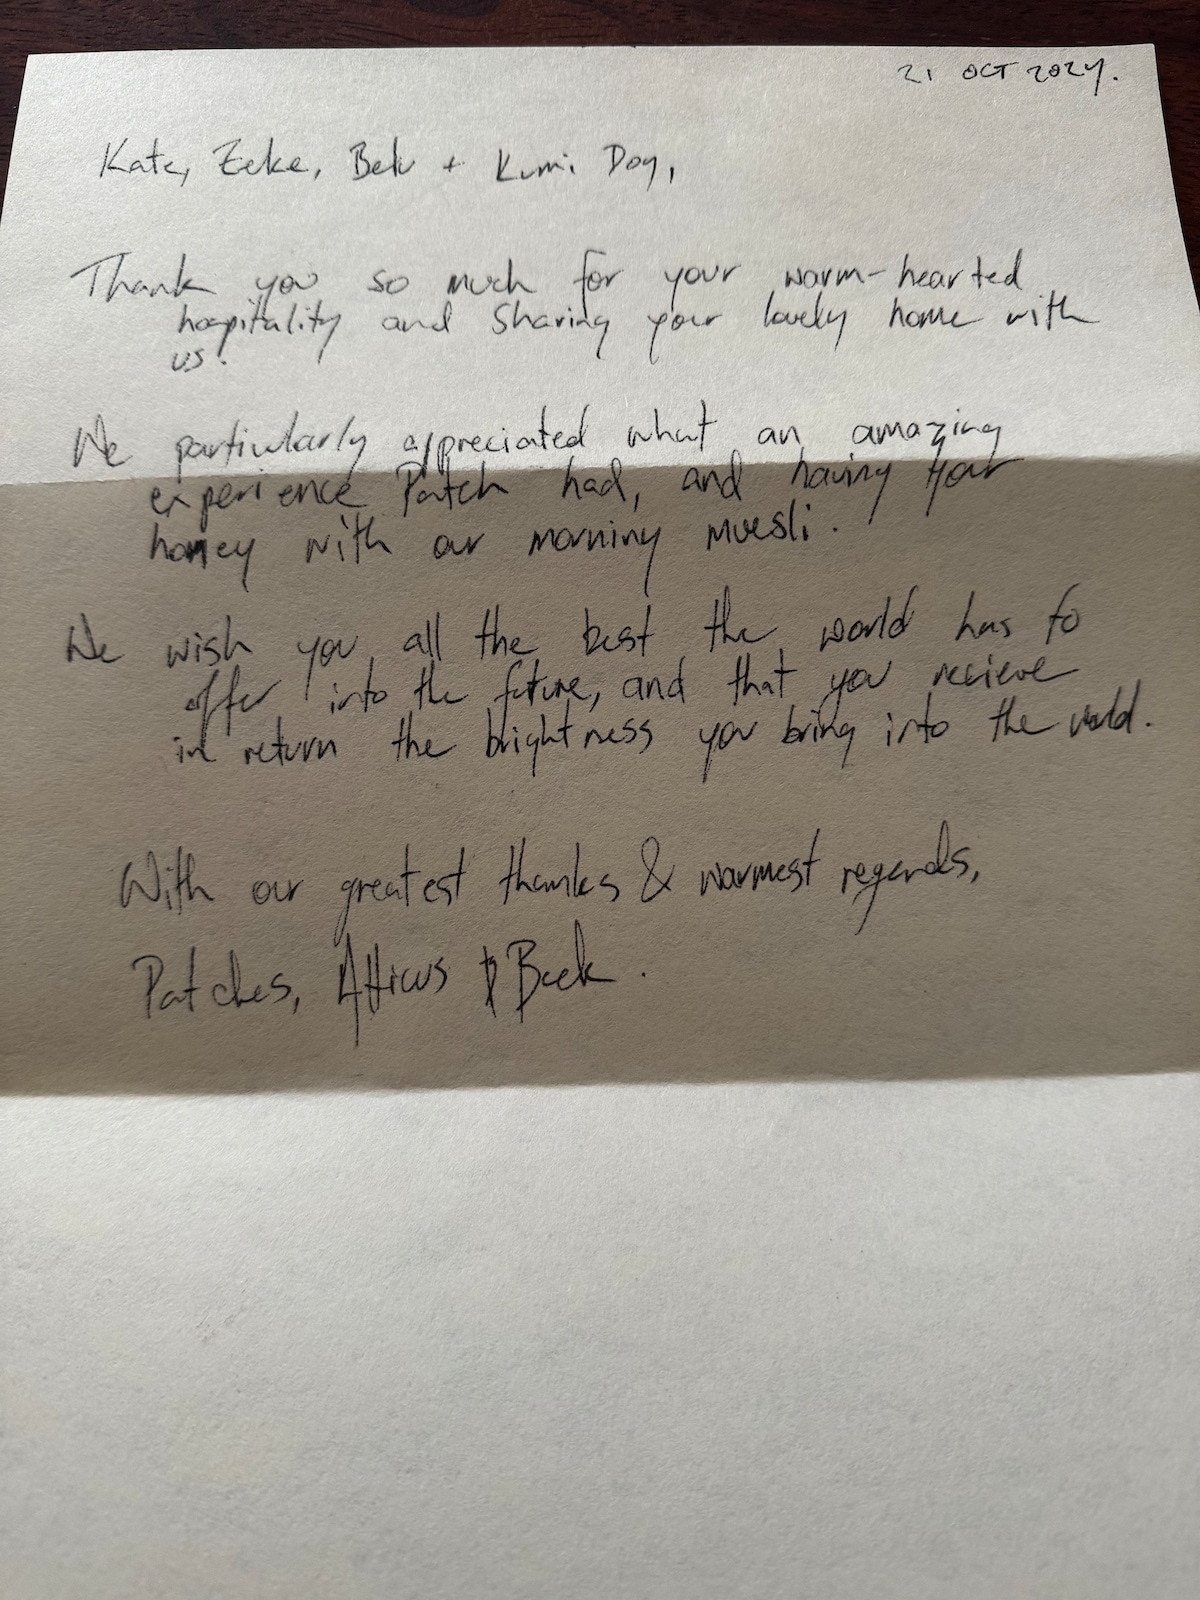 21 OCT 2024.
Kate, Zeke, + Kumi Dog,
Thank you so much for your warm-hearted
hospitality and sharing your lovely home with
us.
We particularly appreciated what an amazing
experience Patch had, and having your
honey with our morning muesli.
We wish you all the best the world has to
offer into the future, and that you recieve
in return the brightness you bring into the world.
With our greatest thanks & warmest regards,
Patches, Atticus &